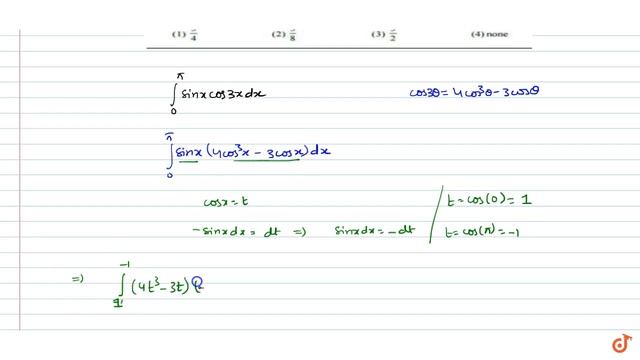 (1) π/4 (2) π/8 (3) π/2 (4) none
∫₀^π sinx cos3x dx cos3θ = 4cos³θ - 3cosθ
∫₀^π sinx (4cos³x - 3cosx) dx
cosx = t t = cos(0) = 1
-sinx dx = dt => sinx dx = -dt t = cos(π) = -1
=> ∫₁^-1 (4t³ - 3t) (